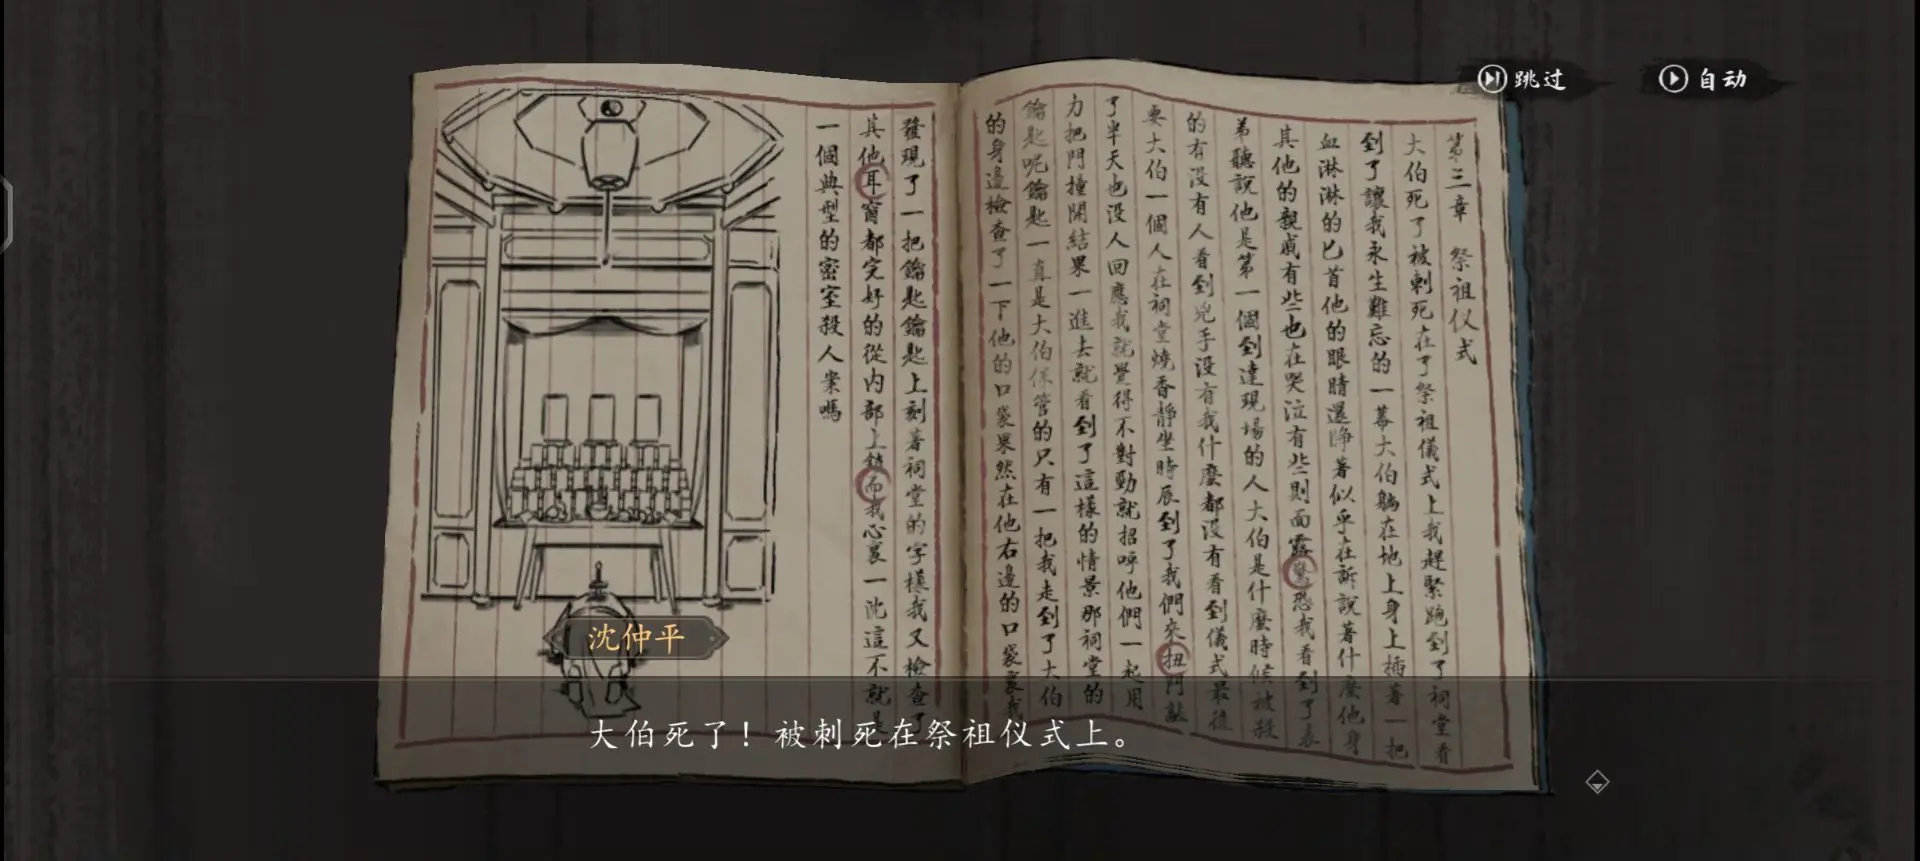 跳过
自动
第三章 祭祖仪式
大伯死了被刺死在了祭祖儀式上我趕緊跑到了祠堂看
到了讓我永生難忘的一幕大伯躺在地上身上插著一把
血淋淋的匕首他的眼睛還睁著似乎在訴說著什麼他身
其他的親戚有些也在哭泣有些則面露驚恐我看到了表
弟聽說他是第一個到達現場的人大伯是什麼時候被殺
的有没有人看到兇手没有我什麼都没有看到儀式最後
要大伯一個人在祠堂燒香靜坐時辰到了我們來扭門敲
了半天也没人回應我就覺得不對勁就招呼他們一起用
力把門撞開結果一進去就看到了這樣的情景那祠堂的
鑰匙呢鑰匙一直是大伯保管的只有一把我走到了大伯
的身邊檢查了一下他的口袋果然在他右邊的口袋裏我
發現了一把鑰匙鑰匙上刻著祠堂的字樣我又檢查了
其他耳窗都完好的從内部上鎖而我心裏一沈這不就是
一個典型的密室殺人案嗎
沈仲平
大伯死了！被刺死在祭祖仪式上。